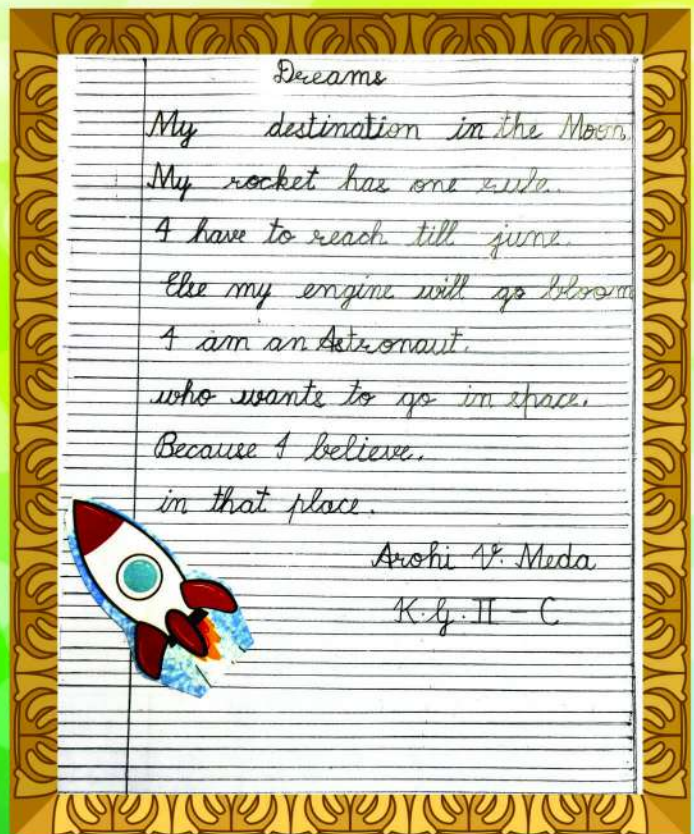 Dreams
My destination in the Moon,
My rocket has one rule.
I have to reach till june.
Else my engine will go bloom
I am an Astronaut.
who wants to go in space.
Because I believe.
in that place.
Arohi V. Meda
K.G.II - C